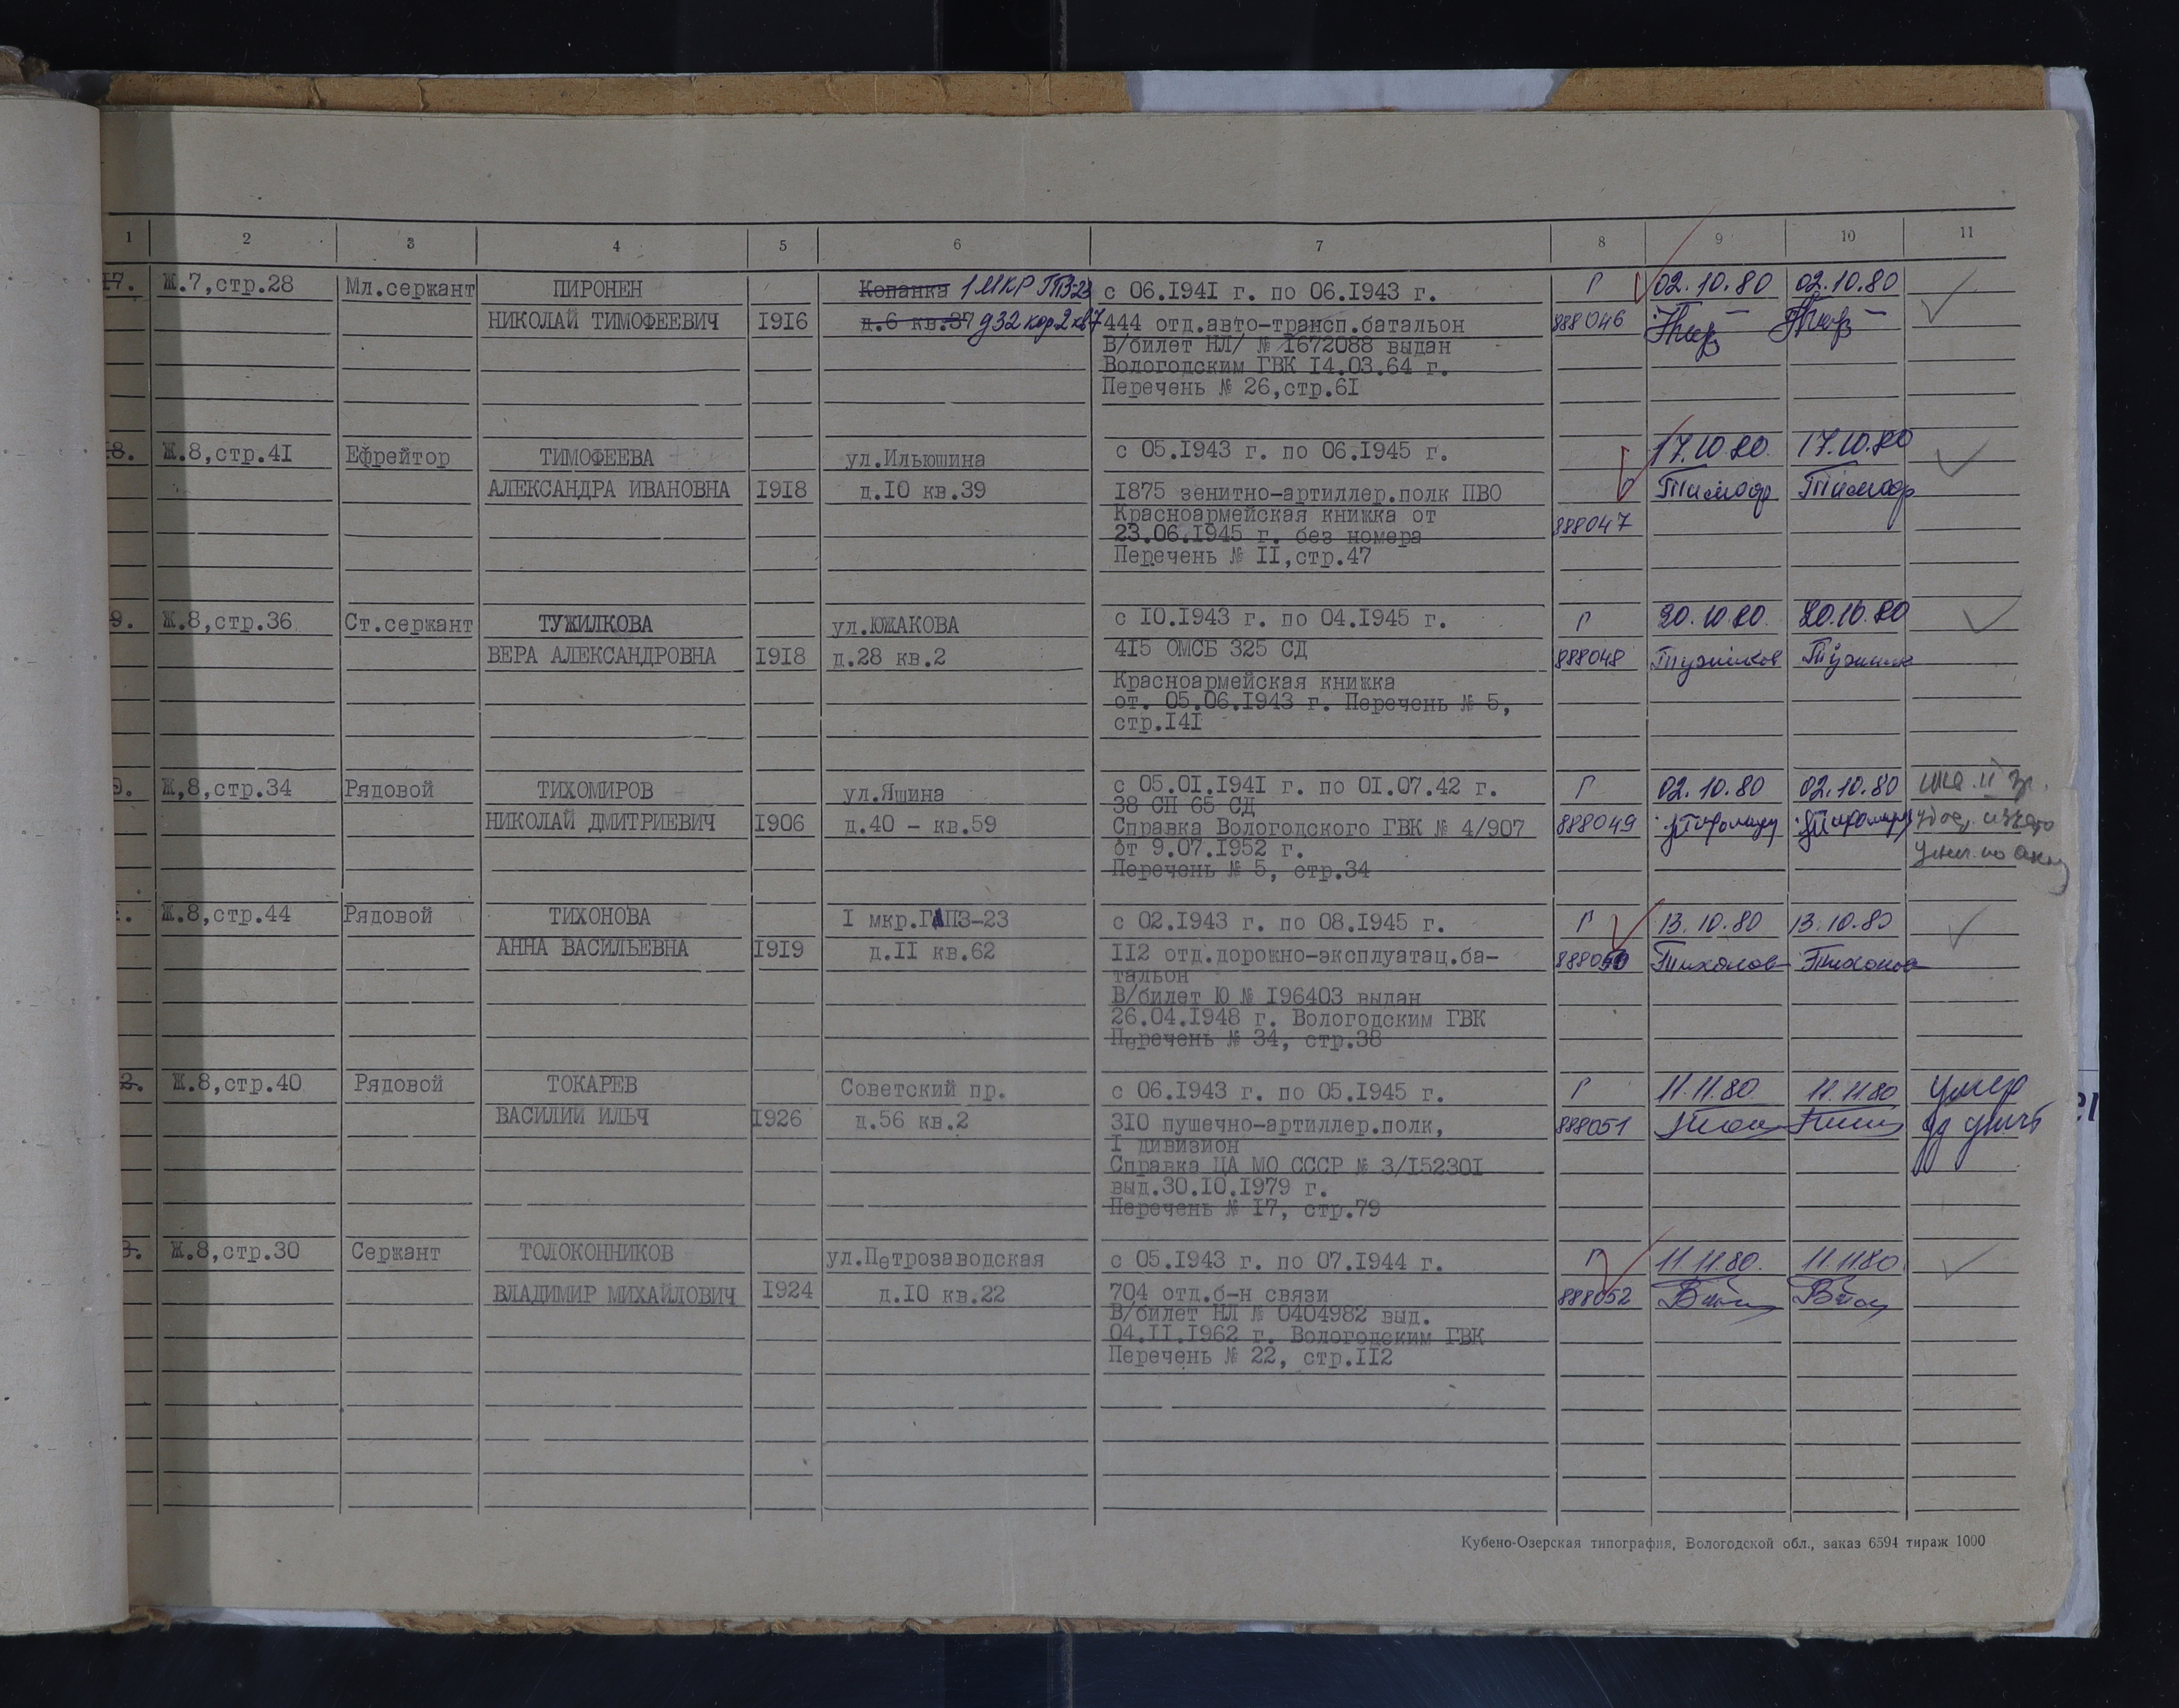 1 2 3 4 5 6 7 8 9 10 11
17. Ж.7,стр.28 Мл.сержант ПИРОНЕН Копанка 1 МКР ГПЗ-23 с 06.1941 г. по 06.1943 г. Г 02.10.80 02.10.80
НИКОЛАЙ ТИМОФЕЕВИЧ 1916 д.6 кв.37 д32 кор.2 кв7 444 отд.авто-трансп.батальон 888046
В/билет НЛ/ № 1672088 выдан
Вологодским ГВК 14.03.64 г.
Перечень № 26,стр.61
18. Ж.8,стр.41 Ефрейтор ТИМОФЕЕВА ул.Ильюшина с 05.1943 г. по 06.1945 г. 17.10.80. 17.10.80
АЛЕКСАНДРА ИВАНОВНА 1918 д.10 кв.39 1875 зенитно-артиллер.полк ПВО Тимоф Тимоф
Красноармейская книжка от 888047
23.06.1945 г. без номера
Перечень № 11,стр.47
9. Ж.8,стр.36 Ст.сержант ТУЖИЛКОВА ул.ЮЖАКОВА с 10.1943 г. по 04.1945 г. Г 20.10.80. 20.10.80
ВЕРА АЛЕКСАНДРОВНА 1918 д.28 кв.2 415 ОМСБ 325 СД 888048 Тужилков
Красноармейская книжка
от. 05.06.1943 г. Перечень № 5,
стр.141
0. Ж,8,стр.34 Рядовой ТИХОМИРОВ ул.Яшина с 05.01.1941 г. по 01.07.42 г. Г 02.10.80 02.10.80
38 СП 65 СД
НИКОЛАЙ ДМИТРИЕВИЧ 1906 д.40 - кв.59 Справка Вологодского ГВК № 4/907 888049
от 9.07.1952 г.
Перечень № 5, стр.34
Ж.8,стр.44 Рядовой ТИХОНОВА I мкр.ГПЗ-23 с 02.1943 г. по 08.1945 г. Г 13.10.80 13.10.80
АННА ВАСИЛЬЕВНА 1919 д.11 кв.62 112 отд.дорожно-эксплуатац.ба- 888050 Тихонов Тихонов
тальон
В/билет Ю № 196403 выдан
26.04.1948 г. Вологодским ГВК
Перечень № 34, стр.38
2. Ж.8,стр.40 Рядовой ТОКАРЕВ Советский пр. с 06.1943 г. по 05.1945 г. Г 11.11.80. 11.11.80 умер
ВАСИЛИЙ ИЛЬЧ 1926 д.56 кв.2 310 пушечно-артиллер.полк, 888051
I дивизион
Справка ЦА МО СССР № 3/152301
выд.30.10.1979 г.
Перечень № 17, стр.79
3. Ж.8,стр.30 Сержант ТОЛОКОННИКОВ ул.Петрозаводская с 05.1943 г. по 07.1944 г. Г 11.11.80. 11.11.80
ВЛАДИМИР МИХАЙЛОВИЧ 1924 д.10 кв.22 704 отд.б-н связи 888052
В/билет НЛ № 0404982 выд.
04.11.1962 г. Вологодским ГВК
Перечень № 22, стр.112
Кубено-Озерская типография, Вологодской обл., заказ 6594 тираж 1000